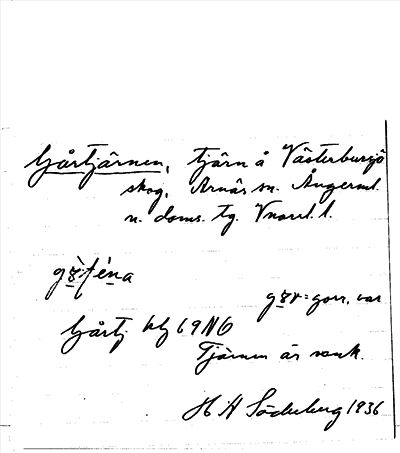 Gårtjärnen, tjärn å Västerbursjö
skog, Arnäs sn. Ångerml.
n. doms. tg. Vnorrl. l.
går = gorr, var
Gårtj. kbl 69 NO
Tjärnen är sank.
H A Söderberg 1936